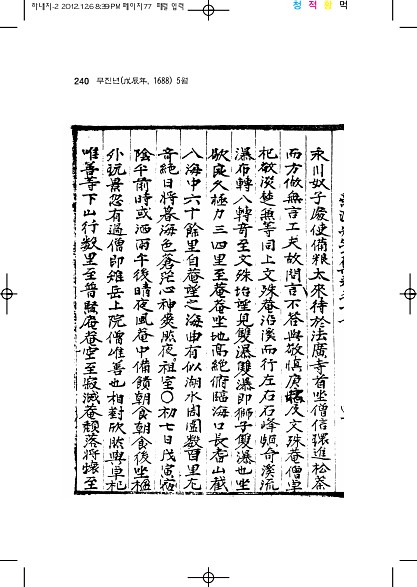 하네지-2 2012.12.6 8:39 PM 페이지77 퍼럴 입력
청 적 황 먹
240 무진년(戊辰年, 1688) 5월
永川奴子慶使備粮太來待於法廣寺首坐僧信強進松茶
而方做無言工夫故問言不答與敬慎 及文殊庵僧卓
杞欲淡楚無等同上文殊庵沿溪而行左右石峰頗奇溪流
瀑布轉八轉奇至文殊坮望見雙瀑雙瀑即獅子雙瀑也坐
歇良久極力三四里至庵庵坐地高絶俯臨海口長鬐山截
入海中六十餘里自庵望之海曲有似湖水周圍數百里尤
奇絶日將暮海色蒼茫心神爽然夜祖室○初七日戊寅宿
陰午前時或洒雨午後晴夜風庵中備饋朝食朝食後坐楹
外玩景忽有過僧即雉岳上院僧雄善也相對欣然與卓杞
唯善等下山行數里至普賢庵庵空至寂滅庵頹落將燦至